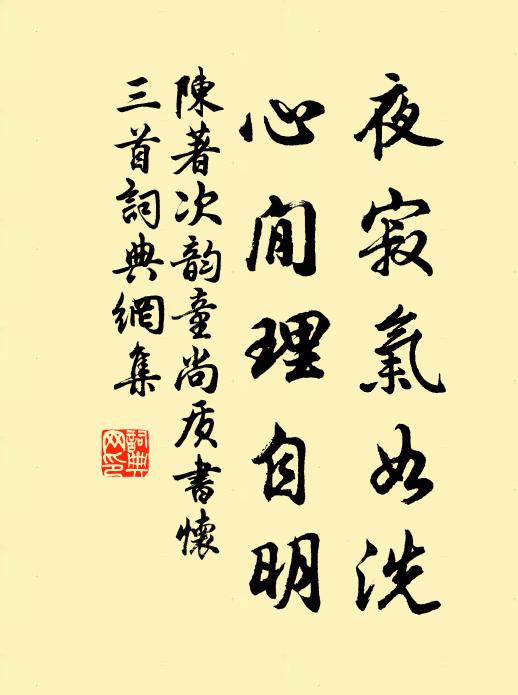 夜寂氣如洗
心閒理自明
陳著次韵童尚质書懷
三首詞典網集
詞典
网印